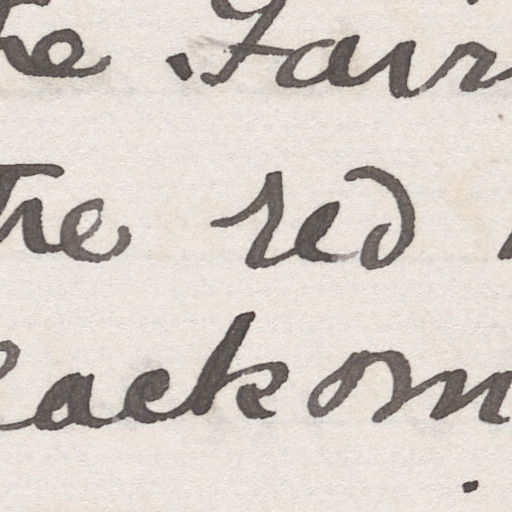 he Fair
the red
lack om